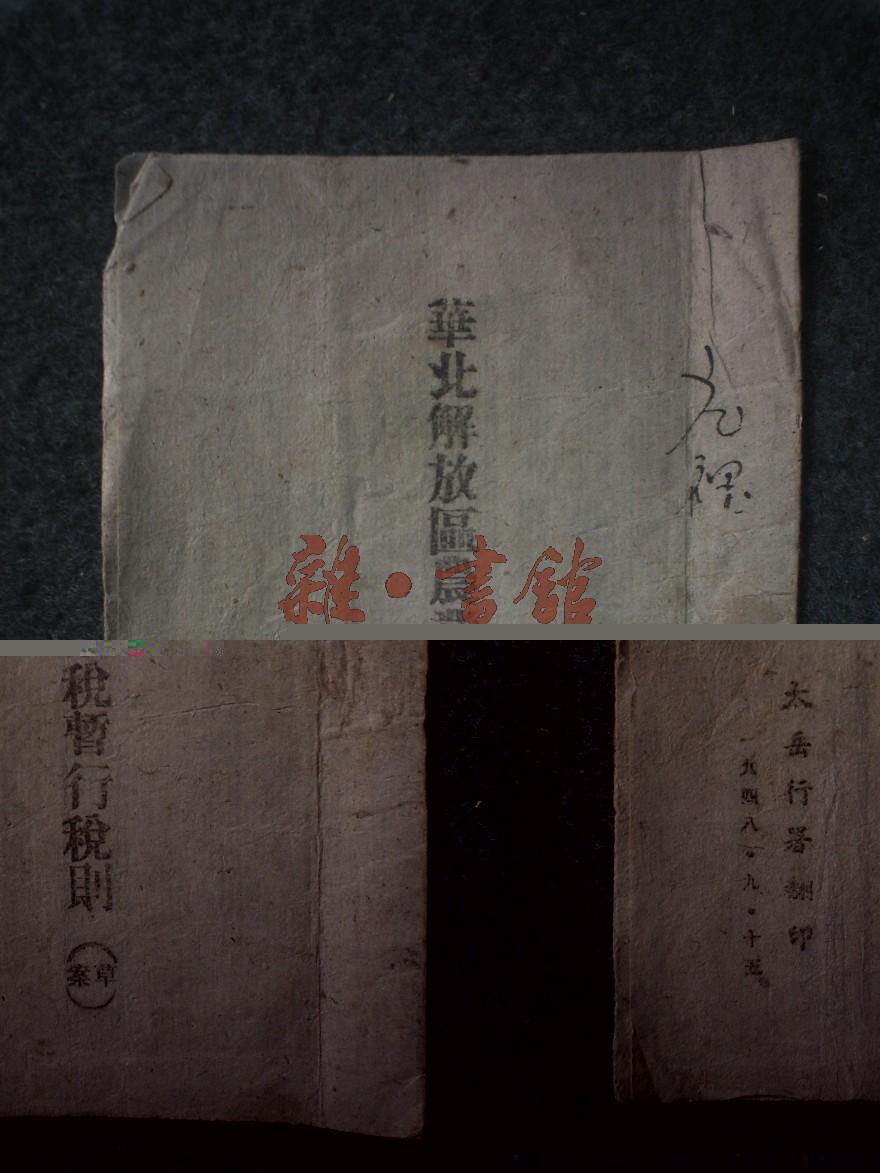 華北解放區農業
税暫行税則
(草案)
雜·書館
太岳行署翻印
一九四八·九·十五